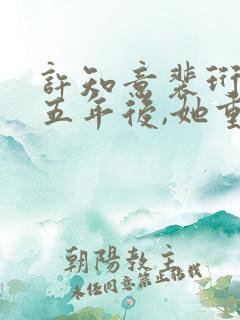 許知意裴珩
五年後,她重
朝陽教主
未任同意禁止轉載